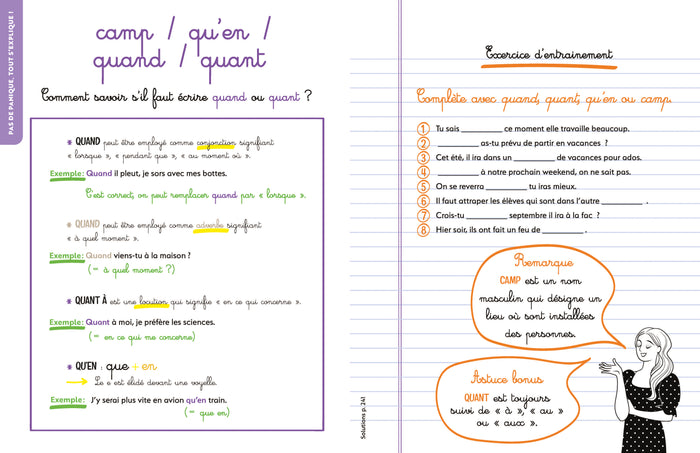 PAS DE PANIQUE, TOUT S'EXPLIQUE !
camp / qu'en /
quand / quant
Comment savoir s'il faut écrire quand ou quant ?
* QUAND peut être employé comme conjonction signifiant
« lorsque », « pendant que », « au moment où ».
Exemple : Quand il pleut, je sors avec mes bottes.
C'est correct, on peut remplacer quand par « lorsque ».
* QUAND peut être employé comme adverbe signifiant
« à quel moment ».
Exemple : Quand viens-tu à la maison ?
(= à quel moment ?)
* QUANT À est une locution qui signifie « en ce qui concerne ».
Exemple : Quant à moi, je préfère les sciences.
(= en ce qui me concerne)
* QU'EN : que + en
Le e est élidé devant une voyelle.
Exemple : J'y serai plus vite en avion qu'en train.
(= que en)
Exercice d'entrainement
Complète avec quand, quant, qu'en ou camp.
1 Tu sais __________ ce moment elle travaille beaucoup.
2 __________ as-tu prévu de partir en vacances ?
3 Cet été, il ira dans un __________ de vacances pour ados.
4 __________ à notre prochain weekend, on ne sait pas.
5 On se reverra __________ tu iras mieux.
6 Il faut attraper les élèves qui sont dans l'autre __________ .
7 Crois-tu __________ septembre il ira à la fac ?
8 Hier soir, ils ont fait un feu de __________ .
Remarque
CAMP est un nom
masculin qui désigne un
lieu où sont installées
des personnes.
Astuce bonus
QUANT est toujours
suivi de « à », « au »
ou « aux ».
Solutions p. 241